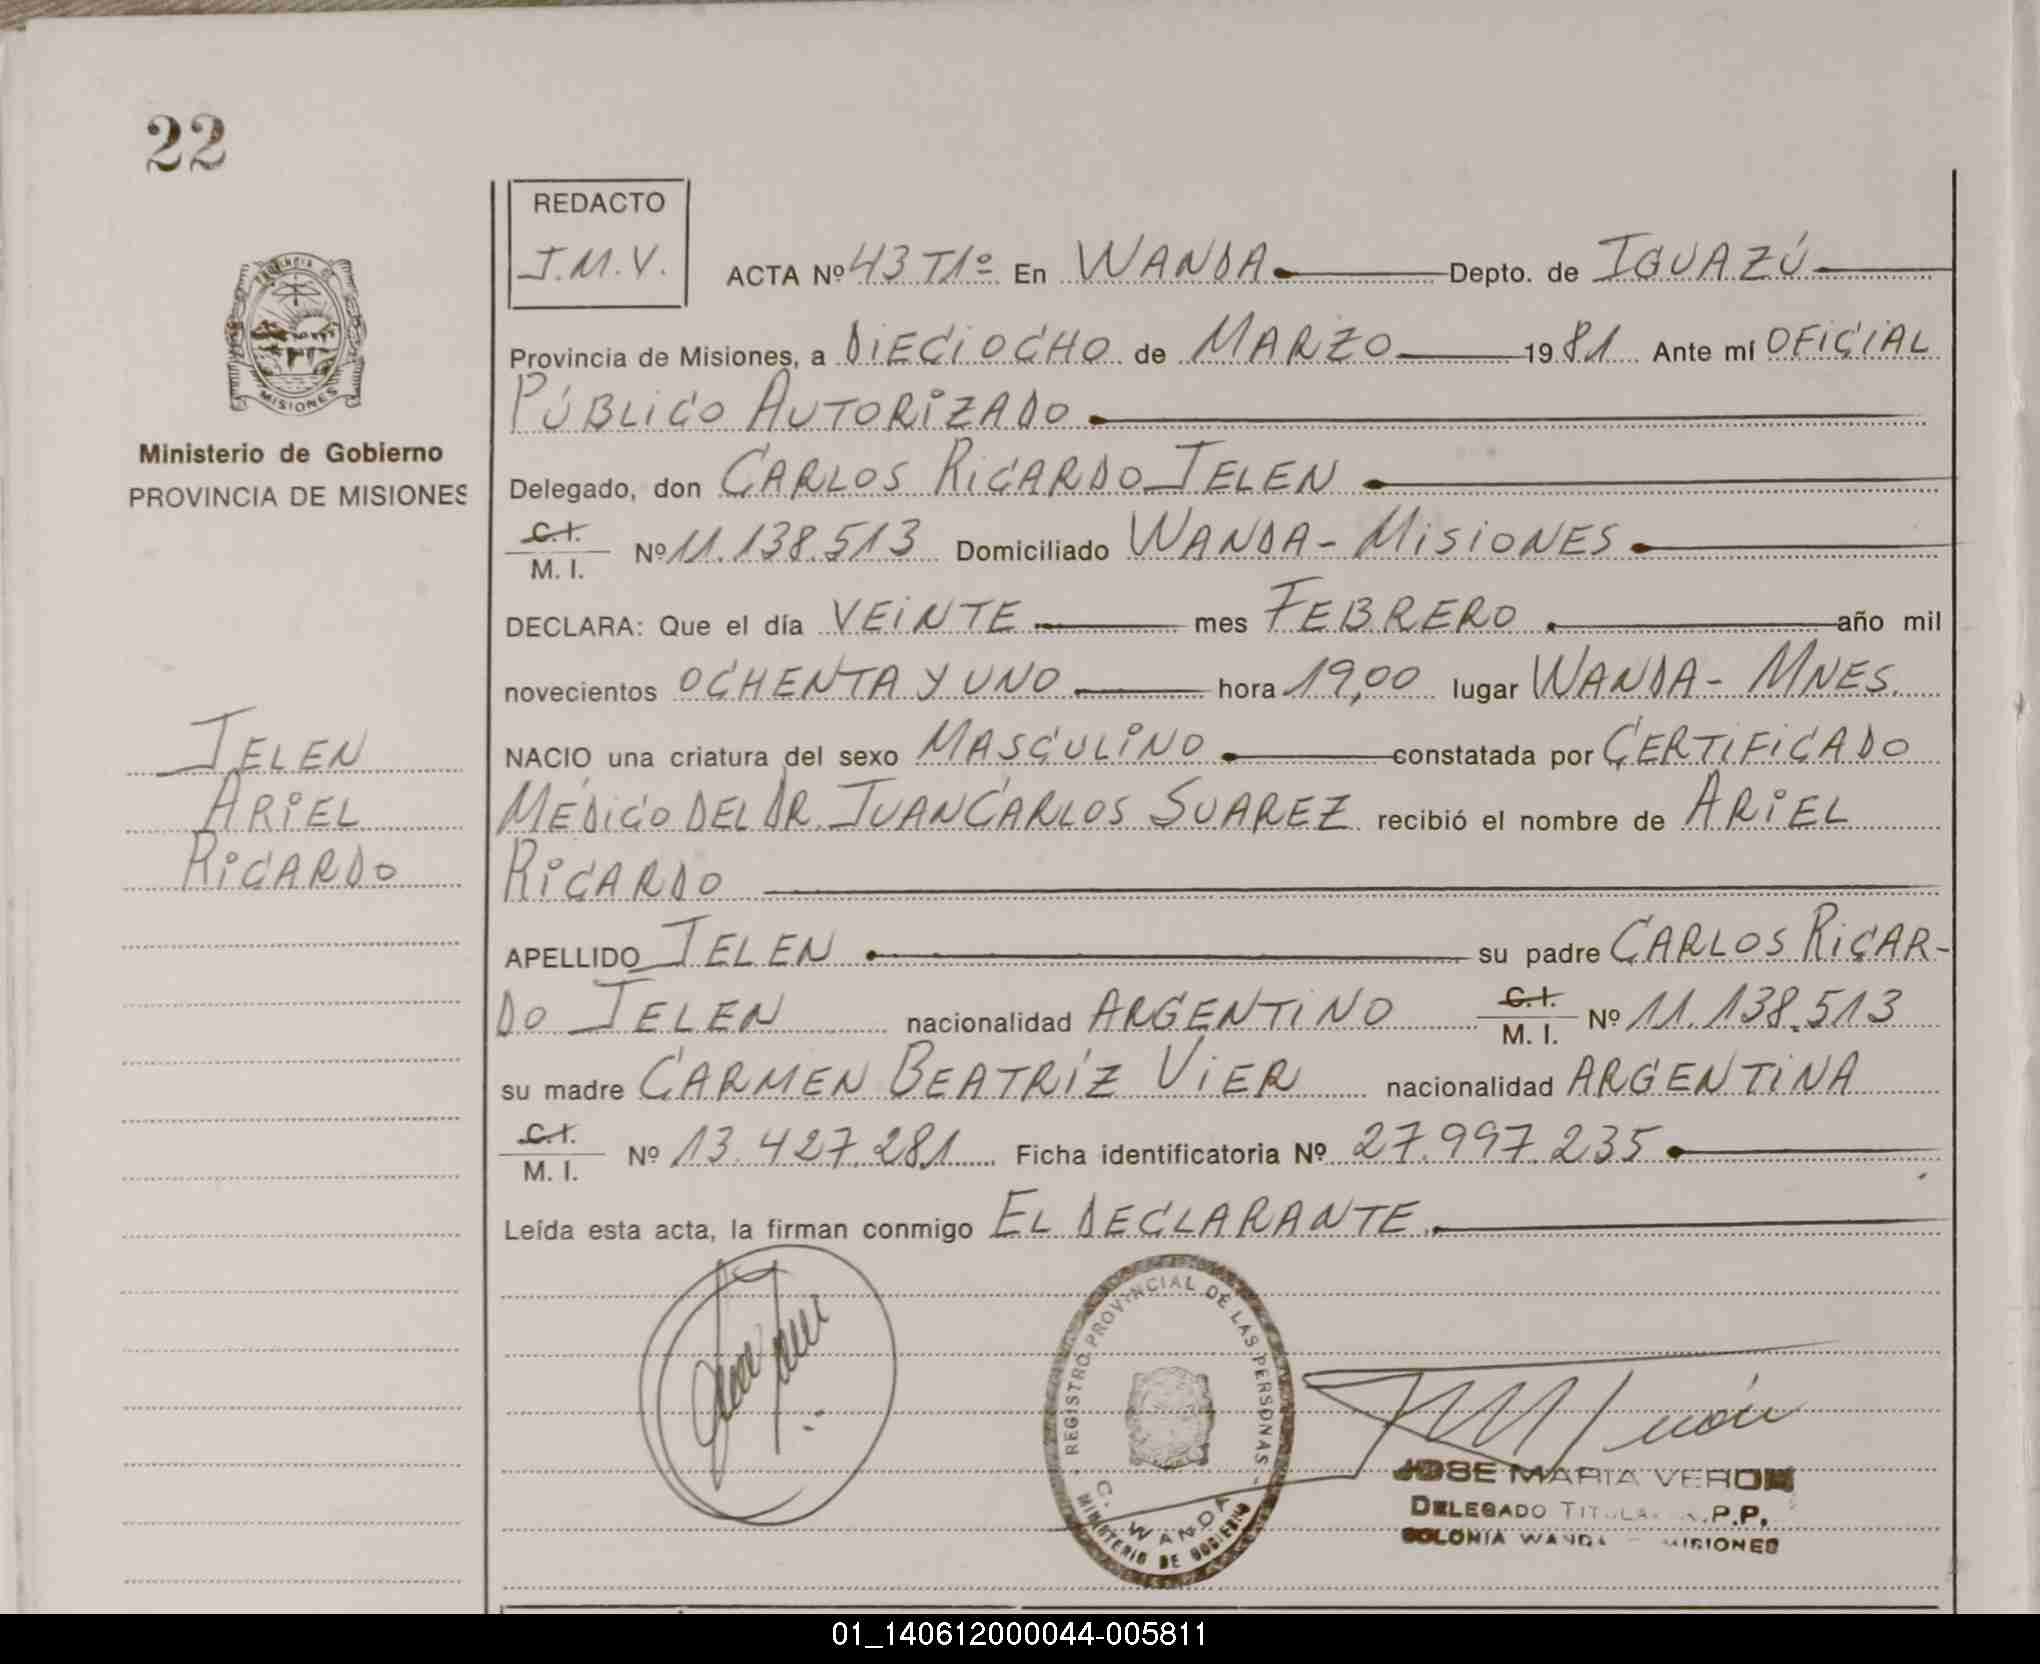 22
REDACTO
J.M.V.
ACTA Nº 43 T1º En WANDA Depto. de IGUAZÚ
Provincia de Misiones, a DIECIOCHO de MARZO 1981 Ante mí OFICIAL
PÚBLICO AUTORIZADO
Delegado, don CARLOS RICARDO JELEN
C.I.
M. I. Nº 11.138.513 Domiciliado WANDA - MISIONES
DECLARA: Que el día VEINTE mes FEBRERO año mil
novecientos OCHENTA Y UNO hora 19,00 lugar WANDA - MNES.
NACIO una criatura del sexo MASCULINO constatada por CERTIFICADO
MÉDICO DEL DR. JUAN CARLOS SUAREZ recibió el nombre de ARIEL
RICARDO
APELLIDO JELEN su padre CARLOS RICAR-
DO JELEN nacionalidad ARGENTINO C.I.
M. I. Nº 11.138.513
su madre CARMEN BEATRÍZ VIER nacionalidad ARGENTINA
C.I.
M. I. Nº 13.427.281 Ficha identificatoria Nº 27.997.235
Leída esta acta, la firman conmigo EL DECLARANTE
PROVINCIA DE
MISIONES
Ministerio de Gobierno
PROVINCIA DE MISIONES
JELEN
ARIEL
RICARDO
REGISTRO PROVINCIAL DE LAS PERSONAS
C. WANDA
MINISTERIO DE GOBIERNO
JOSE MARIA VERON
DELEGADO P.P.
COLONIA WANDA - MISIONES
01_140612000044-005811